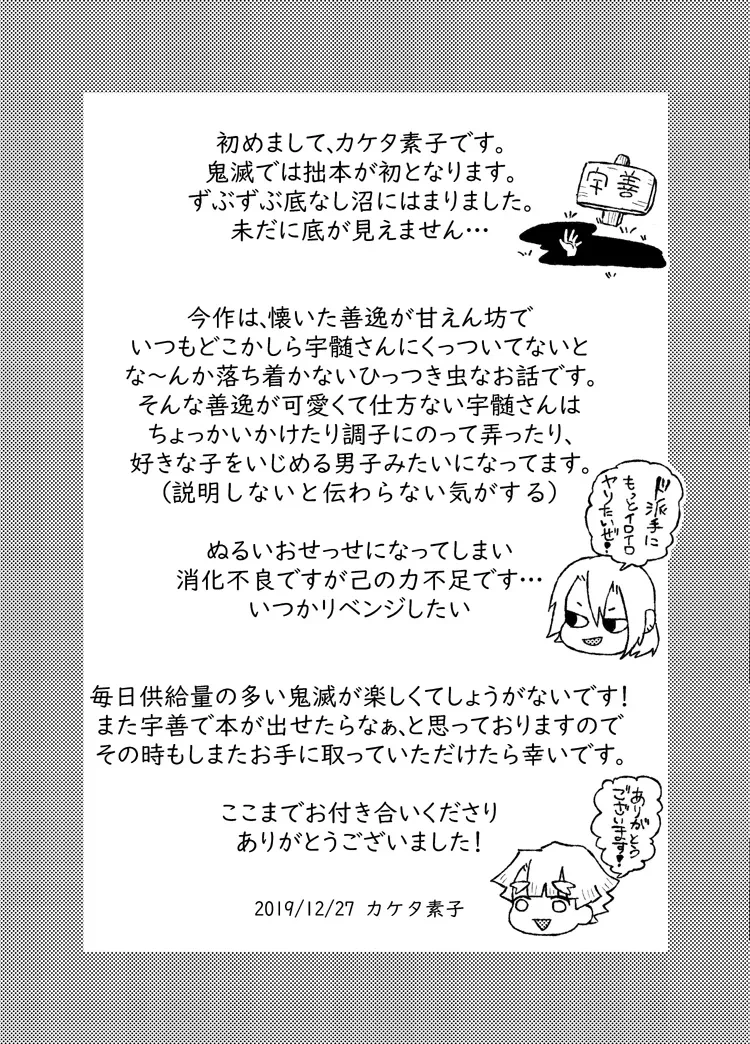 初めまして、カケタ素子です。
鬼滅では拙本が初となります。
ずぶずぶ底なし沼にはまりました。
未だに底が見えません…
宇善
今作は、懐いた善逸が甘えん坊で
いつもどこかしら宇髄さんにくっついてないと
な～んか落ち着かないひっつき虫なお話です。
そんな善逸が可愛くて仕方ない宇髄さんは
ちょっかいかけたり調子にのって弄ったり、
好きな子をいじめる男子みたいになってます。
(説明しないと伝わらない気がする)
ド派手に
もっとイロイロ
ヤりたいぜ!
ぬるいおせっせになってしまい
消化不良ですが己の力不足です…
いつかリベンジしたい
毎日供給量の多い鬼滅が楽しくてしょうがないです!
また宇善で本が出せたらなぁ、と思っておりますので
その時もしまたお手に取っていただけたら幸いです。
ありがとう
ございます!
ここまでお付き合いくださり
ありがとうございました!
2019/12/27 カケタ素子